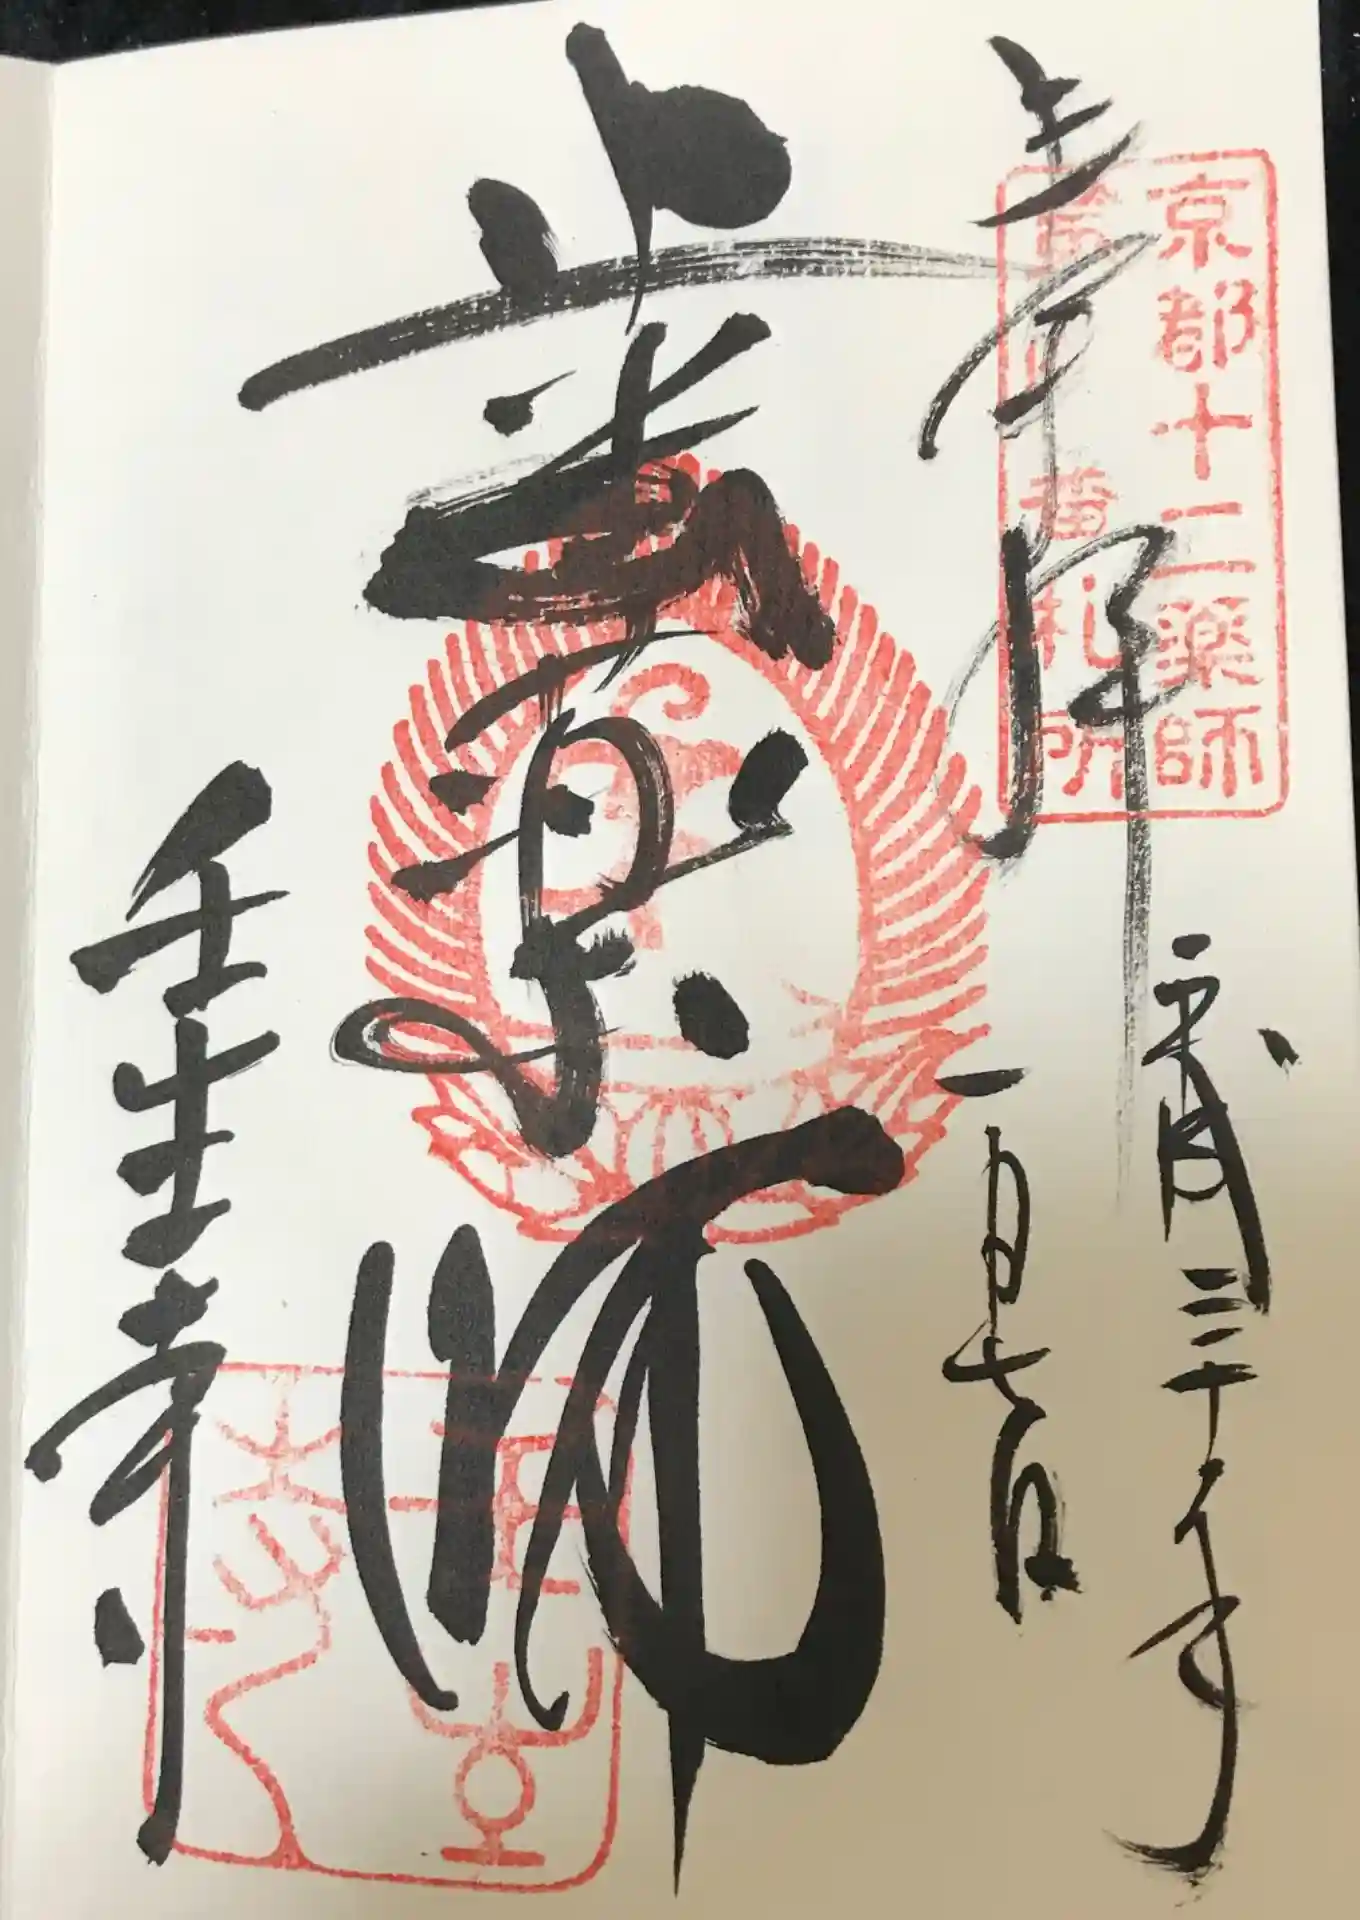 奉拝
京都十二薬師
番札所
平成三十年
一月七日
歯薬師
壬生寺